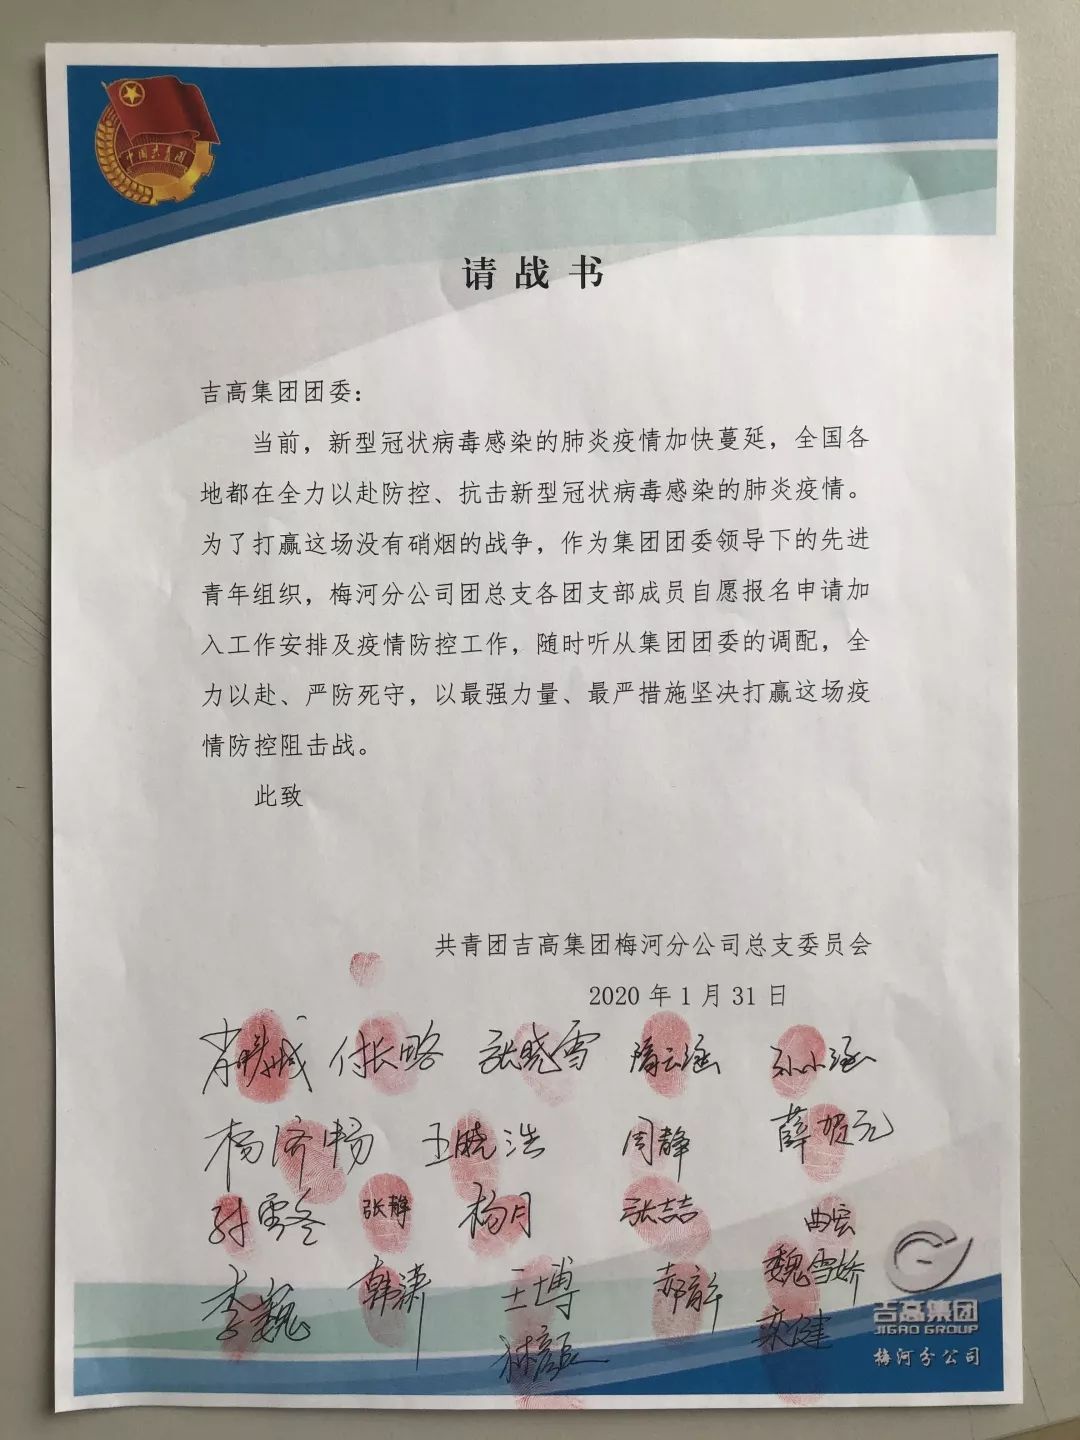 中国共青团
请战书
吉高集团团委：
当前，新型冠状病毒感染的肺炎疫情加快蔓延，全国各
地都在全力以赴防控、抗击新型冠状病毒感染的肺炎疫情。
为了打赢这场没有硝烟的战争，作为集团团委领导下的先进
青年组织，梅河分公司团总支各团支部成员自愿报名申请加
入工作安排及疫情防控工作，随时听从集团团委的调配，全
力以赴、严防死守，以最强力量、最严措施坚决打赢这场疫
情防控阻击战。
此致
共青团吉高集团梅河分公司总支委员会
2020年1月31日
付长略 张晓雪 隋云涵 孙小涵
杨济畅 王晓浩 周静 薛贺元
张静 杨月 张喆 曲宏
李巍 韩潇 王博 魏雪娇
吉高集团
JIGAO GROUP
梅河分公司